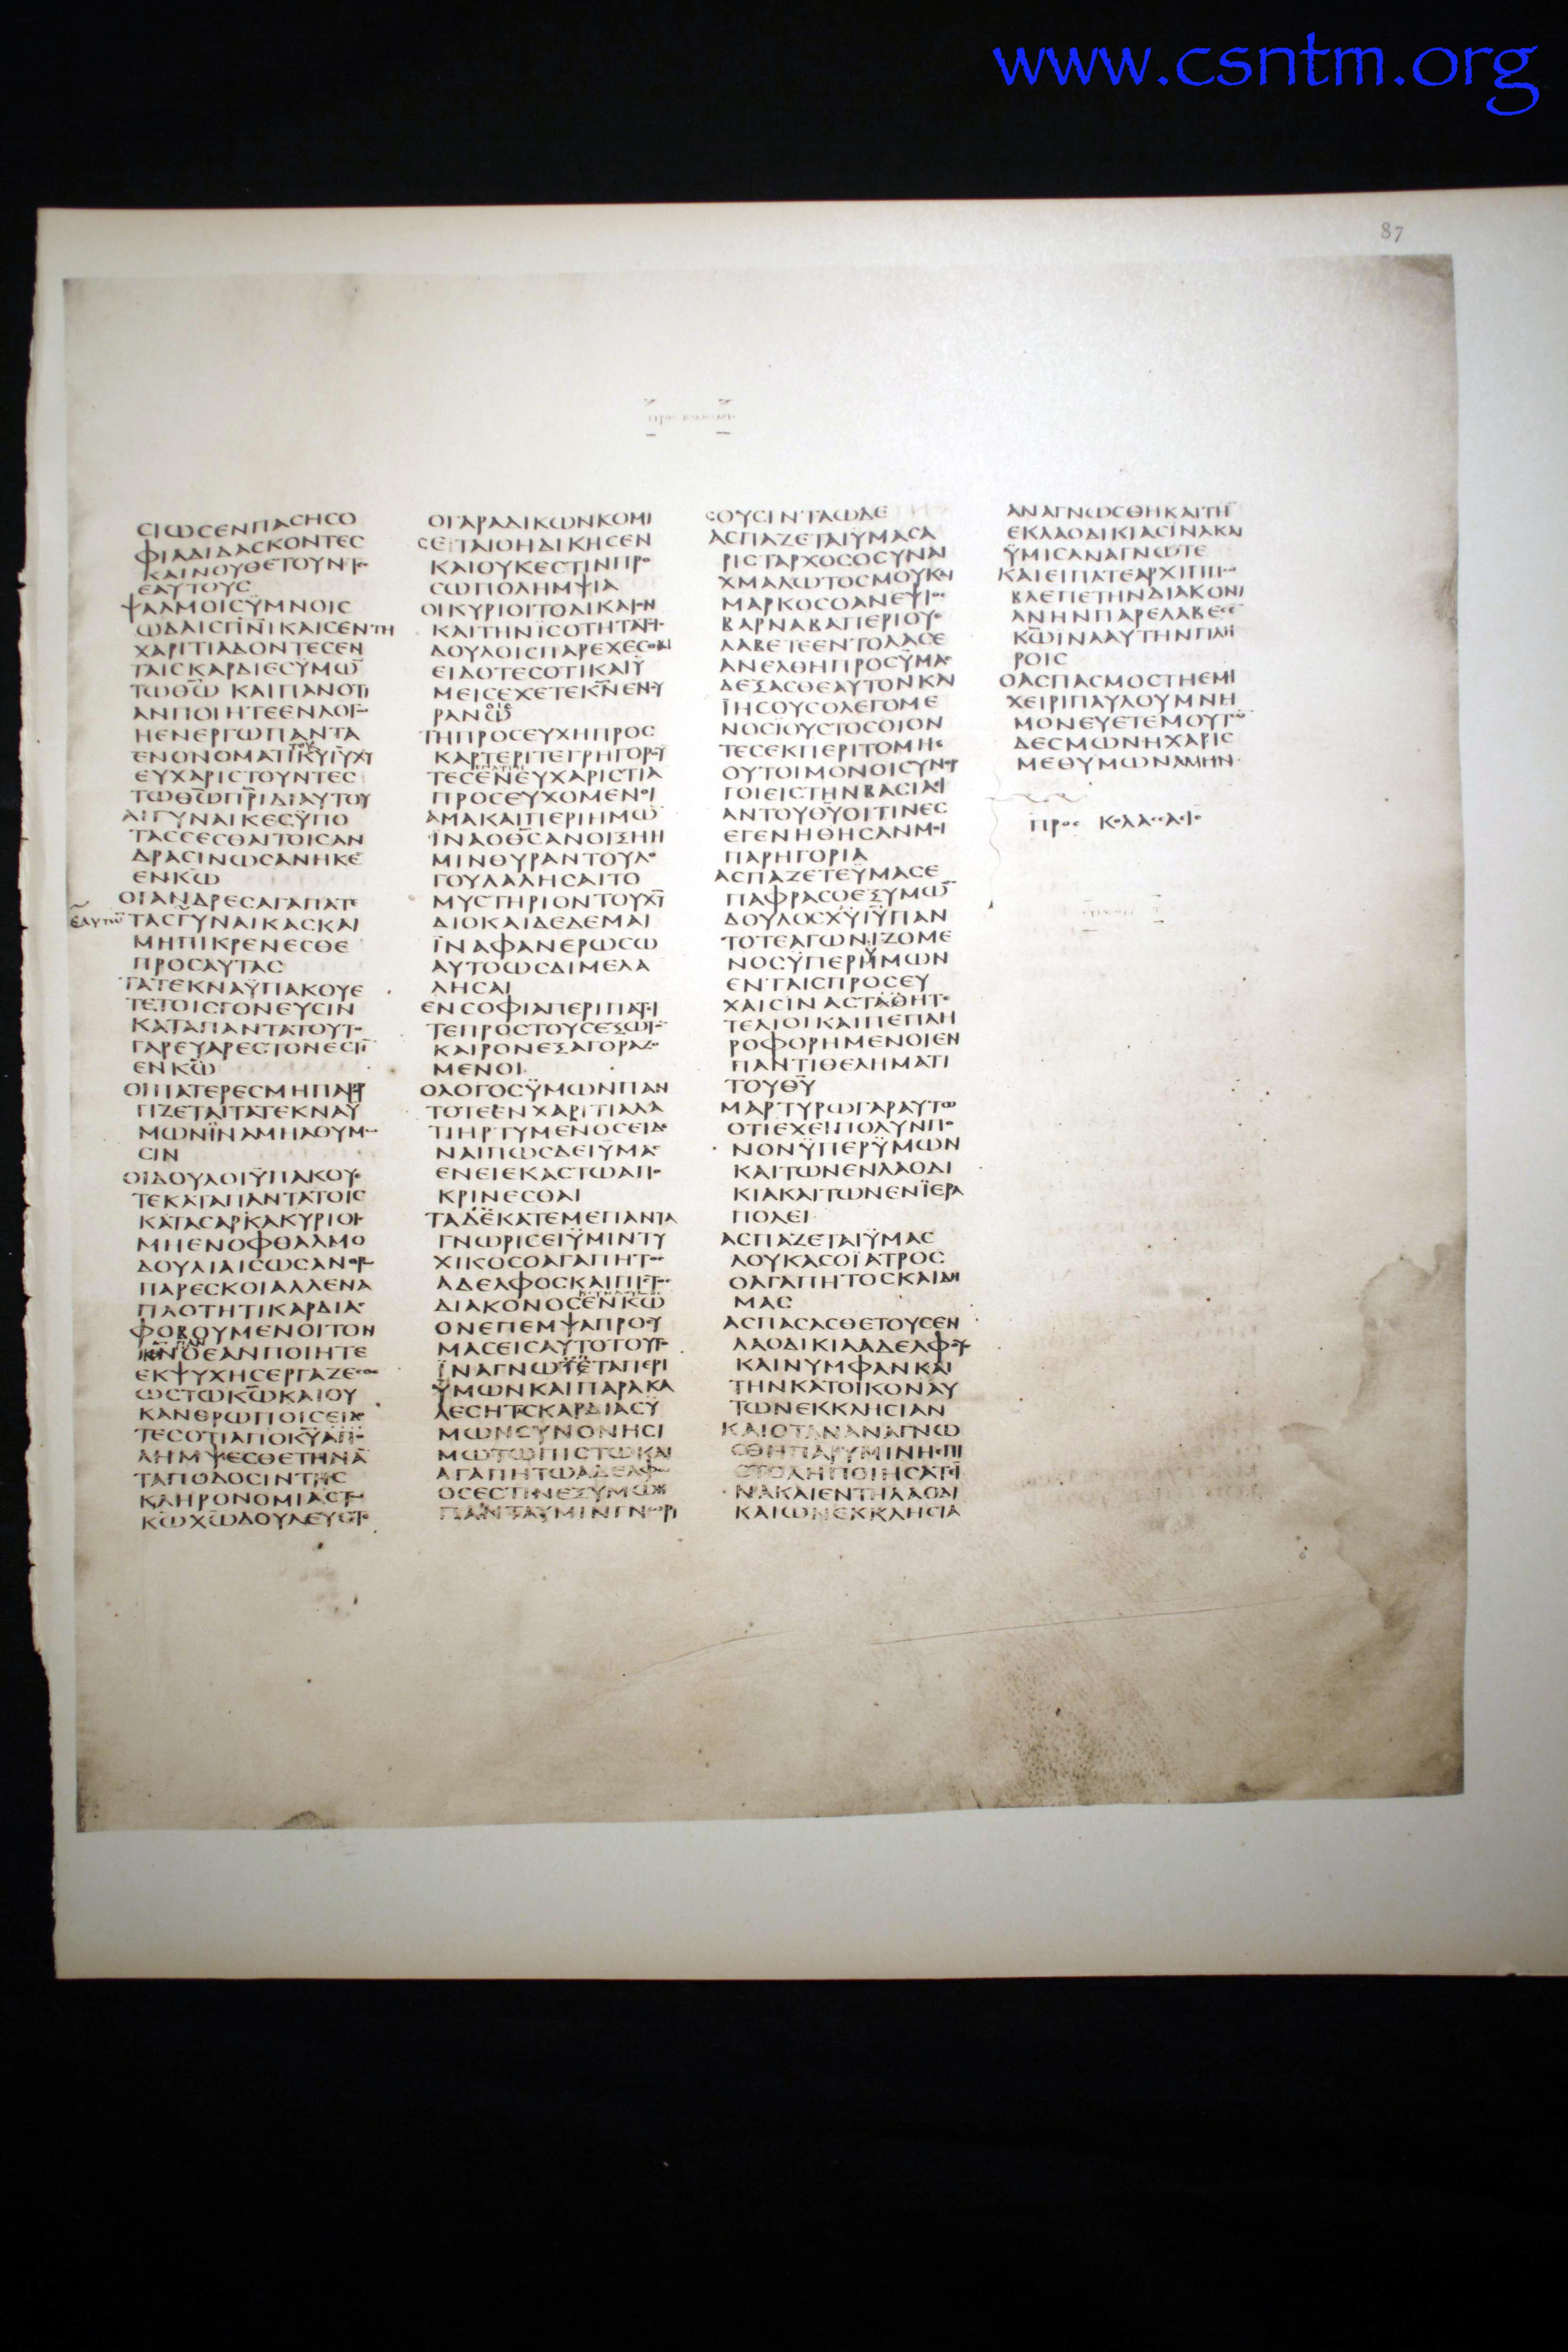 www.csntm.org
87
ΣΙΩΣΕΝΠΑΣΗΣΟ
ΦΙΑΔΙΔΑΣΚΟΝΤΕΣ
ΚΑΙΝΟΥΘΕΤΟΥΝΤΕ
ΕΑΥΤΟΥΣ
ΨΑΛΜΟΙΣΫΜΝΟΙΣ
ΩΔΑΙΣΠΝΙΚΑΙΣΕΝΤΗ
ΧΑΡΙΤΙΑΔΟΝΤΕΣΕΝ
ΤΑΙΣΚΑΡΔΙΕΣΫΜΩ̅
ΤΩΘ̅Ω̅ ΚΑΙΠΑΝΟΤΙ
ΑΝΠΟΙΗΤΕΕΝΛΟΓΩ
ΗΕΝΕΡΓΩΠΑΝΤΑ
ΕΝΟΝΟΜΑΤΙΚ̅Υ̅Ι̅Υ̅Χ̅Υ̅
ΕΥΧΑΡΙΣΤΟΥΝΤΕΣ
ΤΩΘ̅Ω̅Π̅Ρ̅Ι̅ΔΙΑΥΤΟΥ
ΑΙΓΥΝΑΙΚΕΣΫΠΟ
ΤΑΣΣΕΣΘΑΙΤΟΙΣΑΝ
ΔΡΑΣΙΝΩΣΑΝΗΚΕ
ΕΝΚ̅Ω̅
ΟΙΑΝΔΡΕΣΑΓΑΠΑΤΕ
ΕΑΥΤΩ̅ ΤΑΣΓΥΝΑΙΚΑΣΚΑΙ
ΜΗΠΙΚΡΕΝΕΣΘΕ
ΠΡΟΣΑΥΤΑΣ
ΤΑΤΕΚΝΑΫΠΑΚΟΥΕ
ΤΕΤΟΙΣΓΟΝΕΥΣΙΝ
ΚΑΤΑΠΑΝΤΑΤΟΥΤΟ
ΓΑΡΕΥΑΡΕΣΤΟΝΕΣΤΙ̅
ΕΝΚ̅Ω̅
ΟΙΠΑΤΕΡΕΣΜΗΠΑΡΟΡ
ΓΙΖΕΤΑΙΤΑΤΕΚΝΑΫ
ΜΩΝΪΝΑΜΗΑΘΥΜΩ
ΣΙΝ
ΟΙΔΟΥΛΟΙΫΠΑΚΟΥΕ
ΤΕΚΑΤΑΠΑΝΤΑΤΟΙΣ
ΚΑΤΑΣΑΡΚΑΚΥΡΙΟΙΣ
ΜΗΕΝΟΦΘΑΛΜΟ
ΔΟΥΛΙΑΙΣΩΣΑΝΘΡΩ
ΠΑΡΕΣΚΟΙΑΛΛΕΝΑ
ΠΛΟΤΗΤΙΚΑΡΔΙΑΣ
ΦΟΒΟΥΜΕΝΟΙΤΟΝ
ΚΝΟΕΑΝΠΟΙΗΤΕ
ΕΚΨΥΧΗΣΕΡΓΑΖΕΣΘΕ
ΩΣΤΩΚ̅Ω̅ΚΑΙΟΥ
ΚΑΝΘΡΩΠΟΙΣΕΙΔΟ
ΤΕΣΟΤΙΑΠΟΚ̅Υ̅ΑΠΟ
ΛΗΜΨΕΣΘΕΤΗΝΑ̅
ΤΑΠΟΔΟΣΙΝΤΗΣ
ΚΛΗΡΟΝΟΜΙΑΣΤΩ
Κ̅Ω̅Χ̅Ω̅ΔΟΥΛΕΥΕΤΕ
ΟΓΑΡΑΔΙΚΩΝΚΟΜΙ
ΣΕΤΑΙΟΗΔΙΚΗΣΕΝ
ΚΑΙΟΥΚΕΣΤΙΝΠΡΟ
ΣΩΠΟΛΗΜΨΙΑ
ΟΙΚΥΡΙΟΙΤΟΔΙΚΑΙΟΝ
ΚΑΙΤΗΝΪΣΟΤΗΤΑΤΟΙ
ΔΟΥΛΟΙΣΠΑΡΕΧΕΣΘΑΙ
ΕΙΔΟΤΕΣΟΤΙΚΑΙΫ
ΜΕΙΣΕΧΕΤΕΚ̅Ν̅ΕΝΟΥ
ΡΑΝΩ̅
ΤΗΠΡΟΣΕΥΧΗΠΡΟΣ
ΚΑΡΤΕΡΙΤΕΓΡΗΓΟΡΟΥ
ΤΕΣΕΝΕΥΧΑΡΙΣΤΙΑ
ΠΡΟΣΕΥΧΟΜΕΝΟΙ
ΑΜΑΚΑΙΠΕΡΙΗΜΩ̅
ΪΝΑΟΘ̅Σ̅ΑΝΟΙΞΗΗ
ΜΙΝΘΥΡΑΝΤΟΥΛΟ
ΓΟΥΛΑΛΗΣΑΙΤΟ
ΜΥΣΤΗΡΙΟΝΤΟΥΧ̅Υ̅
ΔΙΟΚΑΙΔΕΔΕΜΑΙ
ΪΝΑΦΑΝΕΡΩΣΩ
ΑΥΤΟΩΣΔΙΜΕΛΑ
ΛΗΣΑΙ
ΕΝΣΟΦΙΑΠΕΡΙΠΑΤΙ
ΤΕΠΡΟΣΤΟΥΣΕΞΩΤΟ
ΚΑΙΡΟΝΕΞΑΓΟΡΑΖΟ
ΜΕΝΟΙ
ΟΛΟΓΟΣΫΜΩΝΠΑΝ
ΤΟΤΕΕΝΧΑΡΙΤΙΑΛΑ
ΤΙΗΡΤΥΜΕΝΟΣΕΙΔΕ
ΝΑΙΠΩΣΔΕΙΫΜΑΣ
ΕΝΕΙΕΚΑΣΤΩΑΠΟ
ΚΡΙΝΕΣΘΑΙ
ΤΑΔΕΚΑΤΕΜΕΠΑΝΤΑ
ΓΝΩΡΙΣΕΙΫΜΙΝΤΥ
ΧΙΚΟΣΟΑΓΑΠΗΤΟΣ
ΑΔΕΛΦΟΣΚΑΙΠΙΣΤΟΣ
ΔΙΑΚΟΝΟΣΕΝΚ̅Ω̅
ΟΝΕΠΕΜΨΑΠΡΟΣΥ
ΜΑΣΕΙΣΑΥΤΟΤΟΥΤΟ
ΪΝΑΓΝΩΤΕΤΑΠΕΡΙ
ΫΜΩΝΚΑΙΠΑΡΑΚΑ
ΛΕΣΗΤΑΣΚΑΡΔΙΑΣΫ
ΜΩΝΣΥΝΟΝΗΣΙ
ΜΩΤΩΠΙΣΤΩΚΑΙ
ΑΓΑΠΗΤΩΑΔΕΛΦΩ
ΟΣΕΣΤΙΝΕΞΥΜΩΝ
ΠΑΝΤΑΥΜΙΝΓΝΩΡΙ
ΣΟΥΣΙΝΤΑΩΔΕ
ΑΣΠΑΖΕΤΑΙΫΜΑΣΑ
ΡΙΣΤΑΡΧΟΣΟΣΥΝΑΙ
ΧΜΑΛΩΤΟΣΜΟΥΚΑΙ
ΜΑΡΚΟΣΟΑΝΕΨΙΟΣ
ΒΑΡΝΑΒΑΠΕΡΙΟΥΕ
ΛΑΒΕΤΕΕΝΤΟΛΑΣΕ
ΑΝΕΛΘΗΠΡΟΣΫΜΑΣ
ΔΕΞΑΣΘΕΑΥΤΟΝΚΑΙ
ΪΗΣΟΥΣΟΛΕΓΟΜΕ
ΝΟΣΪΟΥΣΤΟΣΟΙΟΝ
ΤΕΣΕΚΠΕΡΙΤΟΜΗΣ
ΟΥΤΟΙΜΟΝΟΙΣΥΝΕΡ
ΓΟΙΕΙΣΤΗΝΒΑΣΙΛΕΙ
ΑΝΤΟΥΘ̅Υ̅ΟΙΤΙΝΕΣ
ΕΓΕΝΗΘΗΣΑΝΜΟΙ
ΠΑΡΗΓΟΡΙΑ
ΑΣΠΑΖΕΤΕΫΜΑΣΕ
ΠΑΦΡΑΣΟΕΞΥΜΩ̅
ΔΟΥΛΟΣΧ̅Υ̅Ι̅Υ̅ΠΑΝ
ΤΟΤΕΑΓΩΝΙΖΟΜΕ
ΝΟΣΫΠΕΡΗΜΩΝ
ΕΝΤΑΙΣΠΡΟΣΕΥ
ΧΑΙΣΙΝΑΣΤΑΘΗΤΕ
ΤΕΛΙΟΙΚΑΙΠΕΠΛΗ
ΡΟΦΟΡΗΜΕΝΟΙΕΝ
ΠΑΝΤΙΘΕΛΗΜΑΤΙ
ΤΟΥΘ̅Υ̅
ΜΑΡΤΥΡΩΓΑΡΑΥΤΩ
ΟΤΙΕΧΕΙΠΟΛΥΝΠΟ
ΝΟΝΫΠΕΡΫΜΩΝ
ΚΑΙΤΩΝΕΝΛΑΟΔΙ
ΚΙΑΚΑΙΤΩΝΕΝΪΕΡΑ
ΠΟΛΕΙ
ΑΣΠΑΖΕΤΑΙΫΜΑΣ
ΛΟΥΚΑΣΟΪΑΤΡΟΣ
ΟΑΓΑΠΗΤΟΣΚΑΙΔΗ
ΜΑΣ
ΑΣΠΑΣΑΣΘΕΤΟΥΣΕΝ
ΛΑΟΔΙΚΙΑΑΔΕΛΦΟΥΣ
ΚΑΙΝΥΜΦΑΝΚΑΙ
ΤΗΝΚΑΤΟΙΚΟΝΑΥ
ΤΩΝΕΚΚΛΗΣΙΑΝ
ΚΑΙΟΤΑΝΑΝΑΓΝΩ
ΣΘΗΠΑΡΥΜΙΝΗΕΠΙ
ΣΤΟΛΗΠΟΙΗΣΑΤΕΪ
ΝΑΚΑΙΕΝΤΗΛΑΟΔΙ
ΚΑΙΩΝΕΚΚΛΗΣΙΑ
ΑΝΑΓΝΩΣΘΗΚΑΙΤΗ̅
ΕΚΛΑΟΔΙΚΙΑΣΪΝΑΚΑΙ
ΫΜΙΣΑΝΑΓΝΩΤΕ
ΚΑΙΕΙΠΑΤΕΑΡΧΙΠΠΩ
ΒΛΕΠΕΤΗΝΔΙΑΚΟΝΙ
ΑΝΗΝΠΑΡΕΛΑΒΕΣΕ̅
Κ̅Ω̅ΪΝΑΑΥΤΗΝΠΛΗ
ΡΟΙΣ
ΟΑΣΠΑΣΜΟΣΤΗΕΜΙ
ΧΕΙΡΙΠΑΥΛΟΥΜΝΗ
ΜΟΝΕΥΕΤΕΜΟΥΤΩ̅
ΔΕΣΜΩΝΗΧΑΡΙΣ
ΜΕΘΥΜΩΝΑΜΗΝ
ΠΡΟΣ ΚΟΛΑΣΣΑΕΙΣ